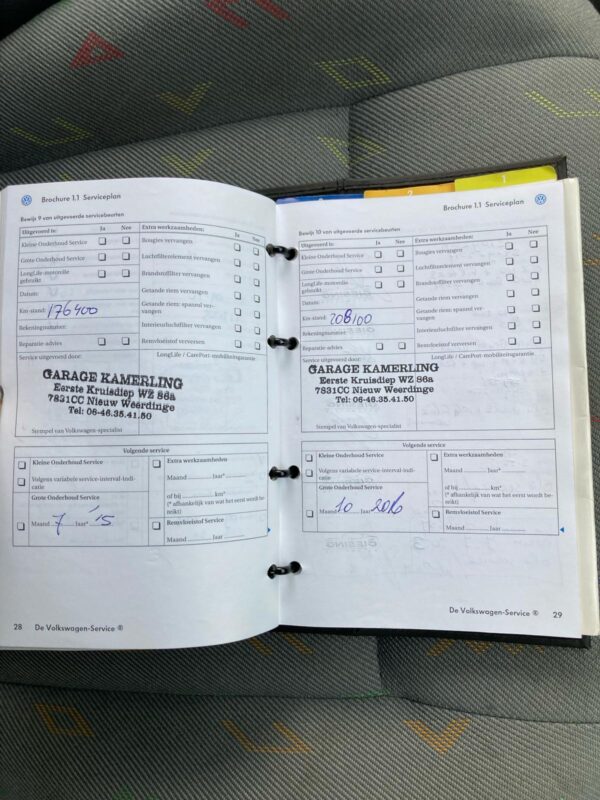 Brochure 1.1 Serviceplan
Bewijs 9 van uitgevoerde servicebeurten
Uitgevoerd is: Ja Nee
Kleine Onderhoud Service
Grote Onderhoud Service
LongLife-motorolie
gebruikt
Datum:
Km-stand: 176400
Rekeningnummer:
Reparatie-advies
Extra werkzaamheden: Ja Nee
Bougies vervangen
Luchtfilterelement vervangen
Brandstoffilter vervangen
Getande riem vervangen
Getande riem: spanrol ver-
vangen
Interieurluchtfilter vervangen
Remvloeistof verversen
Service uitgevoerd door:
LongLife / CarePort-mobiliteitsgarantie
GARAGE KAMERLING
Eerste Kruisdiep WZ 86a
7831CC Nieuw Weerdinge
Tel: 06-46.35.41.50
Stempel van Volkswagen-specialist
Volgende service
Kleine Onderhoud Service
Volgens variabele service-interval-indi-
catie
Grote Onderhoud Service
Maand 7 Jaar* '15
Extra werkzaamheden
Maand Jaar*
of bij km*
(* afhankelijk van wat het eerst wordt be-
reikt)
Remvloeistof Service
Maand Jaar
28 De Volkswagen-Service ®
1
2
Brochure 1.1 Serviceplan
Bewijs 10 van uitgevoerde servicebeurten
Uitgevoerd is: Ja Nee
Kleine Onderhoud Service
Grote Onderhoud Service
LongLife-motorolie
gebruikt
Datum:
Km-stand: 208100
Rekeningnummer:
Reparatie-advies
Extra werkzaamheden: Ja Nee
Bougies vervangen
Luchtfilterelement vervangen
Brandstoffilter vervangen
Getande riem vervangen
Getande riem: spanrol ver-
vangen
Interieurluchtfilter vervangen
Remvloeistof verversen
Service uitgevoerd door:
LongLife / CarePort-mobiliteitsgarantie
GARAGE KAMERLING
Eerste Kruisdiep WZ 86a
7831CC Nieuw Weerdinge
Tel: 06-46.35.41.50
Stempel van Volkswagen-specialist
Volgende service
Kleine Onderhoud Service
Volgens variabele service-interval-indi-
catie
Grote Onderhoud Service
Maand 10 Jaar 2016
Extra werkzaamheden
Maand Jaar*
of bij km*
(* afhankelijk van wat het eerst wordt be-
reikt)
Remvloeistof Service
Maand Jaar
De Volkswagen-Service ® 29